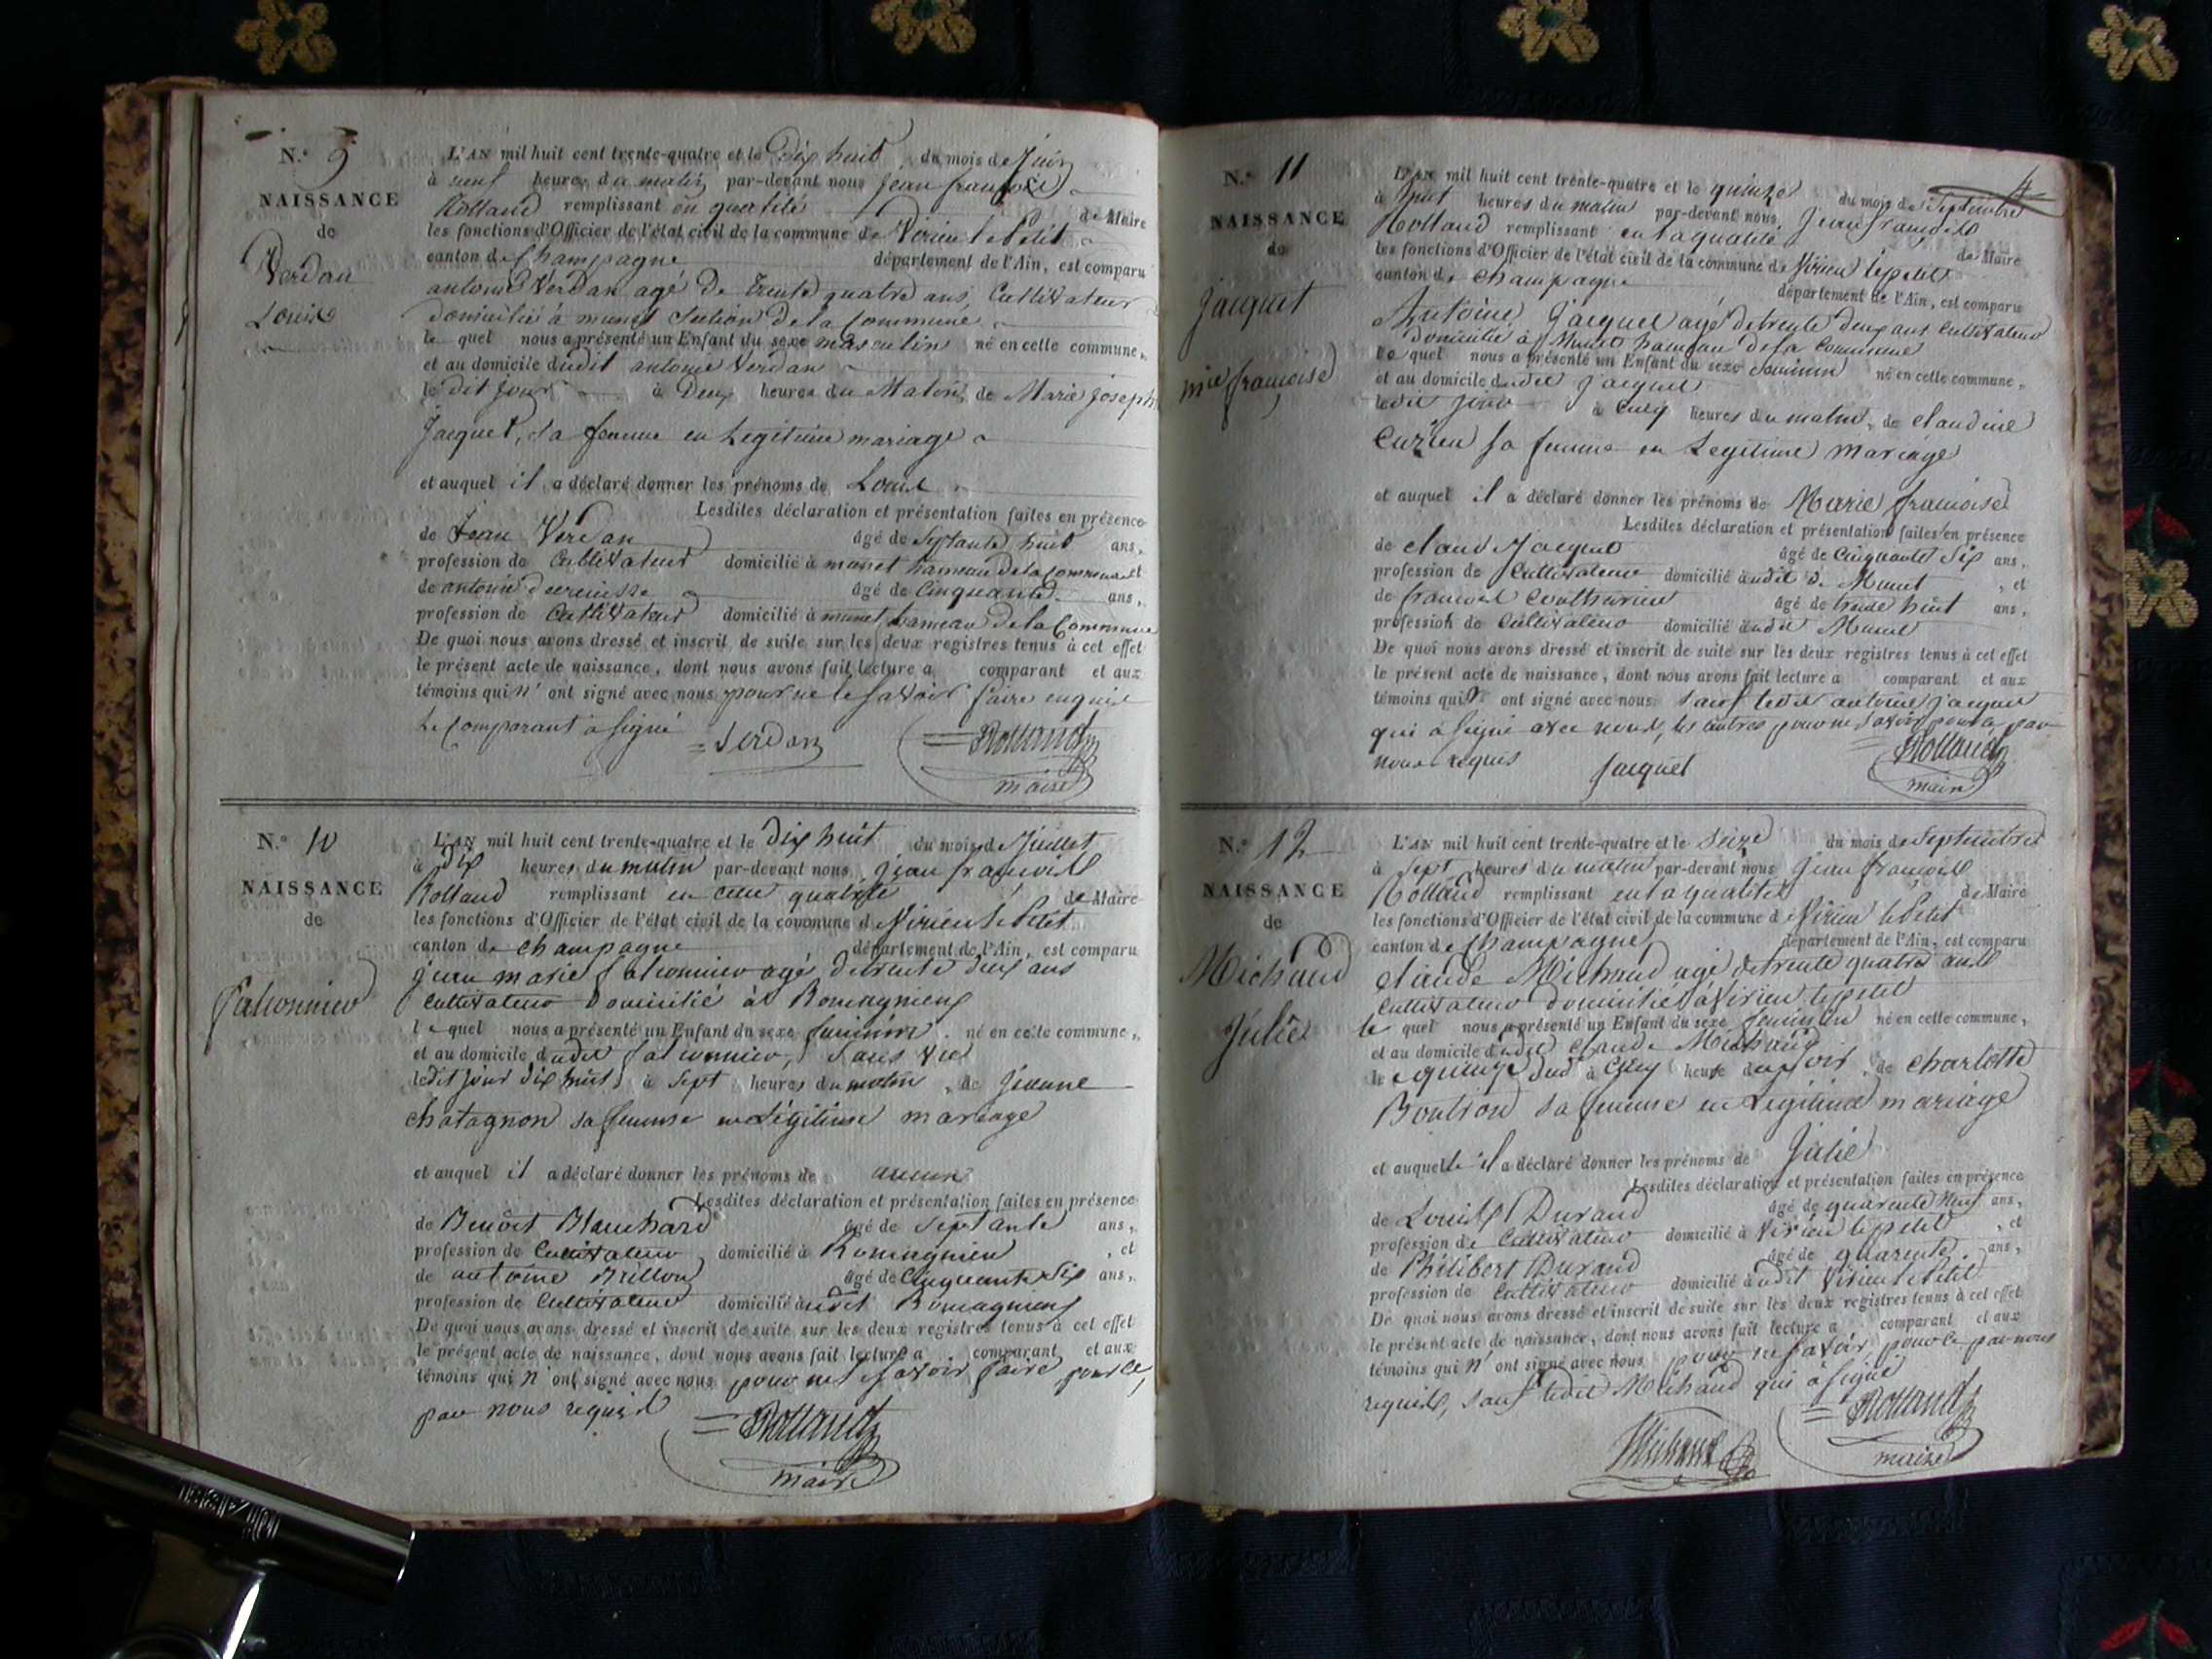 N.° 9
NAISSANCE
de
Verdan
Louis
L'AN mil huit cent trente-quatre et le Dix huit du mois de Juin
à neuf heures du matin par-devant nous Jean françois
Rolland remplissant en qualité de Maire
les fonctions d'Officier de l'état civil de la commune de Virieu le Petit
canton de Champagne département de l'Ain, est comparu
antoine Verdan agé De trente quatre ans, Cultivateur
domicilié à munet Section De la Commune
le quel nous a présenté un Enfant du sexe masculin né en cette commune,
et au domicile dudit antoine Verdan
le dit jour à Deux heures du Matin, de Marie joseph
Jacquet, sa femme en Legitime mariage
et auquel il a déclaré donner les prénoms de Louis
Lesdites déclaration et présentation faites en présence
de Jean Verdan âgé de Septante huit ans,
profession de Cultivateur domicilié à munet hameau de la Commune et
de antoine âgé de Cinquante ans,
profession de Cultivateur domicilié à munet hameau De la Commune
De quoi nous avons dressé et inscrit de suite sur les deux registres tenus à cet effet
le présent acte de naissance, dont nous avons fait lecture a comparant et aux
témoins qui n' ont signé avec nous pour ne le savoir faire enquis
Le Comparant à signé
Verdan Rolland
maire
N.° 10
NAISSANCE
de
Falconnier
L'AN mil huit cent trente-quatre et le Dix huit du mois de Juillet
à Dix heures du matin par-devant nous jean françois
Rolland remplissant en cette qualité de Maire
les fonctions d'Officier de l'état civil de la commune de Virieu le Petit
canton de Champagne département de l'Ain, est comparu
jean marie falconnier agé de trente deux ans
Cultivateur Domicilié à Romagnieu
le quel nous a présenté un Enfant du sexe feminin né en cette commune,
et au domicile dudit falconnier, Sans vie
ledit jour dix huit à Sept heures du matin, de Jeanne
chatagnon sa femme en Légitime mariage
et auquel il a déclaré donner les prénoms de aucun
Lesdites déclaration et présentation faites en présence
de Benoit Blanchard âgé de Septante ans,
profession de Cultivateur domicilié à Romagnieu, et
de antoine Brillon âgé de Cinquante Six ans,
profession de Cultivateur domicilié audit Romagnieu
De quoi nous avons dressé et inscrit de suite sur les deux registres tenus à cet effet
le présent acte de naissance, dont nous avons fait lecture a comparant et aux
témoins qui n' ont signé avec nous pour ne savoir faire pour ce
par nous requis
Rolland
maire
4
N.° 11
NAISSANCE
de
Jacquet
mie françoise
L'AN mil huit cent trente-quatre et le quinze du mois de Septembre
à huit heures du matin par-devant nous Jean françois
Rolland remplissant en la qualité de Maire
les fonctions d'Officier de l'état civil de la commune de Virieu le petit
canton de Champagne département de l'Ain, est comparu
Antoine Jacquet agé de trente deux ans Cultivateur
domicilié à Munet hameau de la Commune
le quel nous a présenté un Enfant du sexe feminin né en cette commune,
et au domicile dudit Jacquet
ledit jour à Cinq heures du matin, de claudine
Curieu sa femme en Legitime mariage
et auquel il a déclaré donner les prénoms de Marie françoise
Lesdites déclaration et présentation faites en présence
de claude Jacquet âgé de Cinquante Six ans,
profession de Cultivateur domicilié audit Munet, et
de françois âgé de trente huit ans,
profession de Cultivateur domicilié audit Munet
De quoi nous avons dressé et inscrit de suite sur les deux registres tenus à cet effet
le présent acte de naissance, dont nous avons fait lecture a comparant et aux
témoins qui ont signé avec nous sauf ledit antoine jacquet
qui à signé avec nous, les autres pour ne savoir pour ce par
nous requis
Jacquet Rolland
maire
N.° 12
NAISSANCE
de
Michaud
Julie
L'AN mil huit cent trente-quatre et le Seize du mois de Septembre
à Sept heures du matin par-devant nous Jean françois
Rolland remplissant en la qualité de Maire
les fonctions d'Officier de l'état civil de la commune de Virieu le Petit
canton de Champagne département de l'Ain, est comparu
claude Michaud agé de trente quatre ans
Cultivateur domicilié à Virieu le petit
le quel nous a présenté un Enfant du sexe feminin né en cette commune,
et au domicile dudit claude Michaud
le quinze dud à Cinq heure du soir, de charlotte
Boutron sa femme en Legitime mariage
et auquelle il a déclaré donner les prénoms de Julie
Lesdites déclaration et présentation faites en présence
de Louis Durand âgé de quarente Neuf ans,
profession de Cultivateur domicilié à Virieu le petit, et
de Philibert Durand âgé de quarente ans,
profession de Cultivateur domicilié audit Virieu le Petit
De quoi nous avons dressé et inscrit de suite sur les deux registres tenus à cet effet
le présent acte de naissance, dont nous avons fait lecture a comparant et aux
témoins qui n' ont signé avec nous pour ne savoir, pour ce par nous
requis, sauf ledit Michaud qui à signé
Michaud Rolland
maire